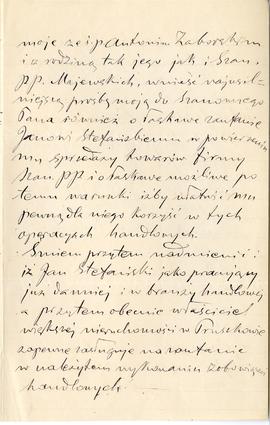 moje ze ś.p. Antonim Zaborskim
i z rodziną tak jego jak i Szan.
p.p. Majewskich, wnieść najusil-
niejszą prośbę moją do Szanownego
Pana również o łaskawe zaufanie
Janowi Stefańskiemu w powierzeniu
mu sprzedaży towarów firmy
Szan. PP i o łaskawe możliwe po
temu warunki iżby ułatwić mu
pewną dla niego korzyść w tych
operacyach handlowych.
Śmiem przytem nadmienić i
iż Jan Stefański jako pracujący
już dawniej i w branży handlowej
a przytem obecnie właściciel
większej nieruchomości w Pruszkowie
zapewne zasługuje na zaufanie
w należytem wykonaniu zobowiązań
handlowych.